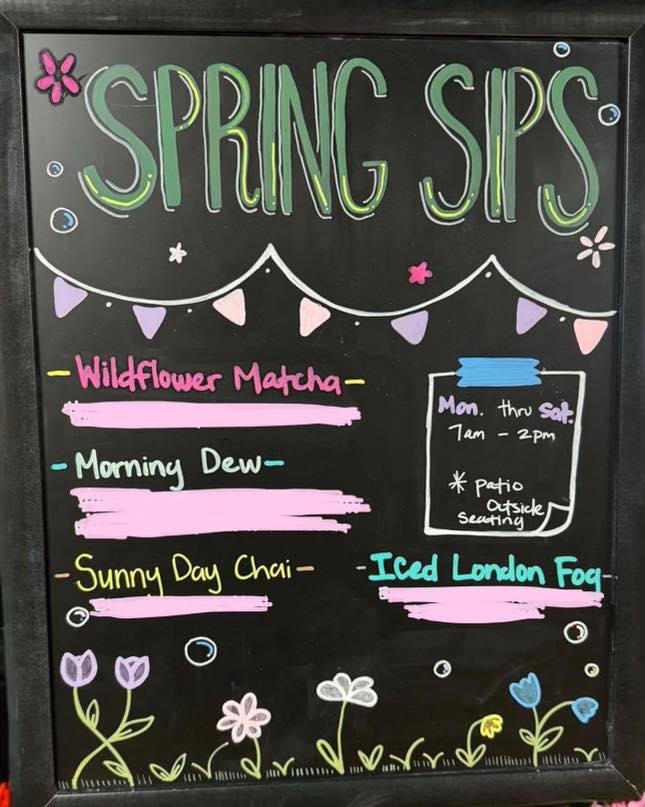 SPRING SIPS
- Wildflower Matcha -
- Morning Dew -
- Sunny Day Chai -
Mon. thru Sat.
7am - 2pm
* patio
Outside
seating
- Iced London Fog -